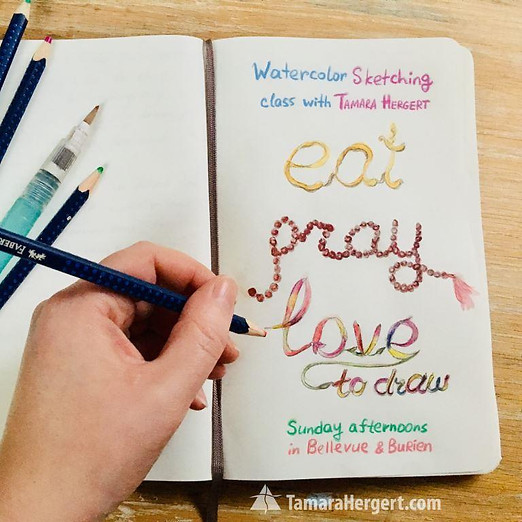 Watercolor Sketching
class with TAMARA HERGERT
eat
pray
love
to draw
Sunday afternoons
in Bellevue & Burien
TamaraHergert.com